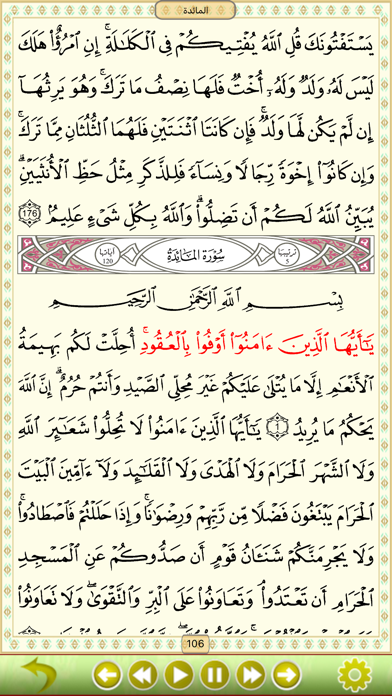 المائدة
يَسْتَفْتُونَكَ قُلِ ٱللَّهُ يُفْتِيكُمْ فِى ٱلْكَلَٰلَةِ ۚ إِنِ ٱمْرُؤٌا۟ هَلَكَ
لَيْسَ لَهُۥ وَلَدٌ وَلَهُۥٓ أُخْتٌ فَلَهَا نِصْفُ مَا تَرَكَ ۚ وَهُوَ يَرِثُهَآ
إِن لَّمْ يَكُن لَّهَا وَلَدٌ ۚ فَإِن كَانَتَا ٱثْنَتَيْنِ فَلَهُمَا ٱلثُّلُثَانِ مِمَّا تَرَكَ ۚ
وَإِن كَانُوٓا۟ إِخْوَةً رِّجَالًا وَنِسَآءً فَلِلذَّكَرِ مِثْلُ حَظِّ ٱلْأُنثَيَيْنِ ۗ
يُبَيِّنُ ٱللَّهُ لَكُمْ أَن تَضِلُّوا۟ ۗ وَٱللَّهُ بِكُلِّ شَىْءٍ عَلِيمٌۢ 176
ترتيبها 5 سُورَةُ المَائدَةِ آياتها 120
بِسْمِ ٱللَّهِ ٱلرَّحْمَٰنِ ٱلرَّحِيمِ
يَٰٓأَيُّهَا ٱلَّذِينَ ءَامَنُوٓا۟ أَوْفُوا۟ بِٱلْعُقُودِ ۚ أُحِلَّتْ لَكُم بَهِيمَةُ
ٱلْأَنْعَٰمِ إِلَّا مَا يُتْلَىٰ عَلَيْكُمْ غَيْرَ مُحِلِّى ٱلصَّيْدِ وَأَنتُمْ حُرُمٌ ۗ إِنَّ ٱللَّهَ
يَحْكُمُ مَا يُرِيدُ 1 يَٰٓأَيُّهَا ٱلَّذِينَ ءَامَنُوا۟ لَا تُحِلُّوا۟ شَعَٰٓئِرَ ٱللَّهِ
وَلَا ٱلشَّهْرَ ٱلْحَرَامَ وَلَا ٱلْهَدْىَ وَلَا ٱلْقَلَٰٓئِدَ وَلَآ ءَآمِّينَ ٱلْبَيْتَ
ٱلْحَرَامَ يَبْتَغُونَ فَضْلًا مِّن رَّبِّهِمْ وَرِضْوَٰنًا ۚ وَإِذَا حَلَلْتُمْ فَٱصْطَادُوا۟ ۚ
وَلَا يَجْرِمَنَّكُمْ شَنَـَٔانُ قَوْمٍ أَن صَدُّوكُمْ عَنِ ٱلْمَسْجِدِ
ٱلْحَرَامِ أَن تَعْتَدُوا۟ ۘ وَتَعَاوَنُوا۟ عَلَى ٱلْبِرِّ وَٱلتَّقْوَىٰ ۖ وَلَا تَعَاوَنُوا۟
106